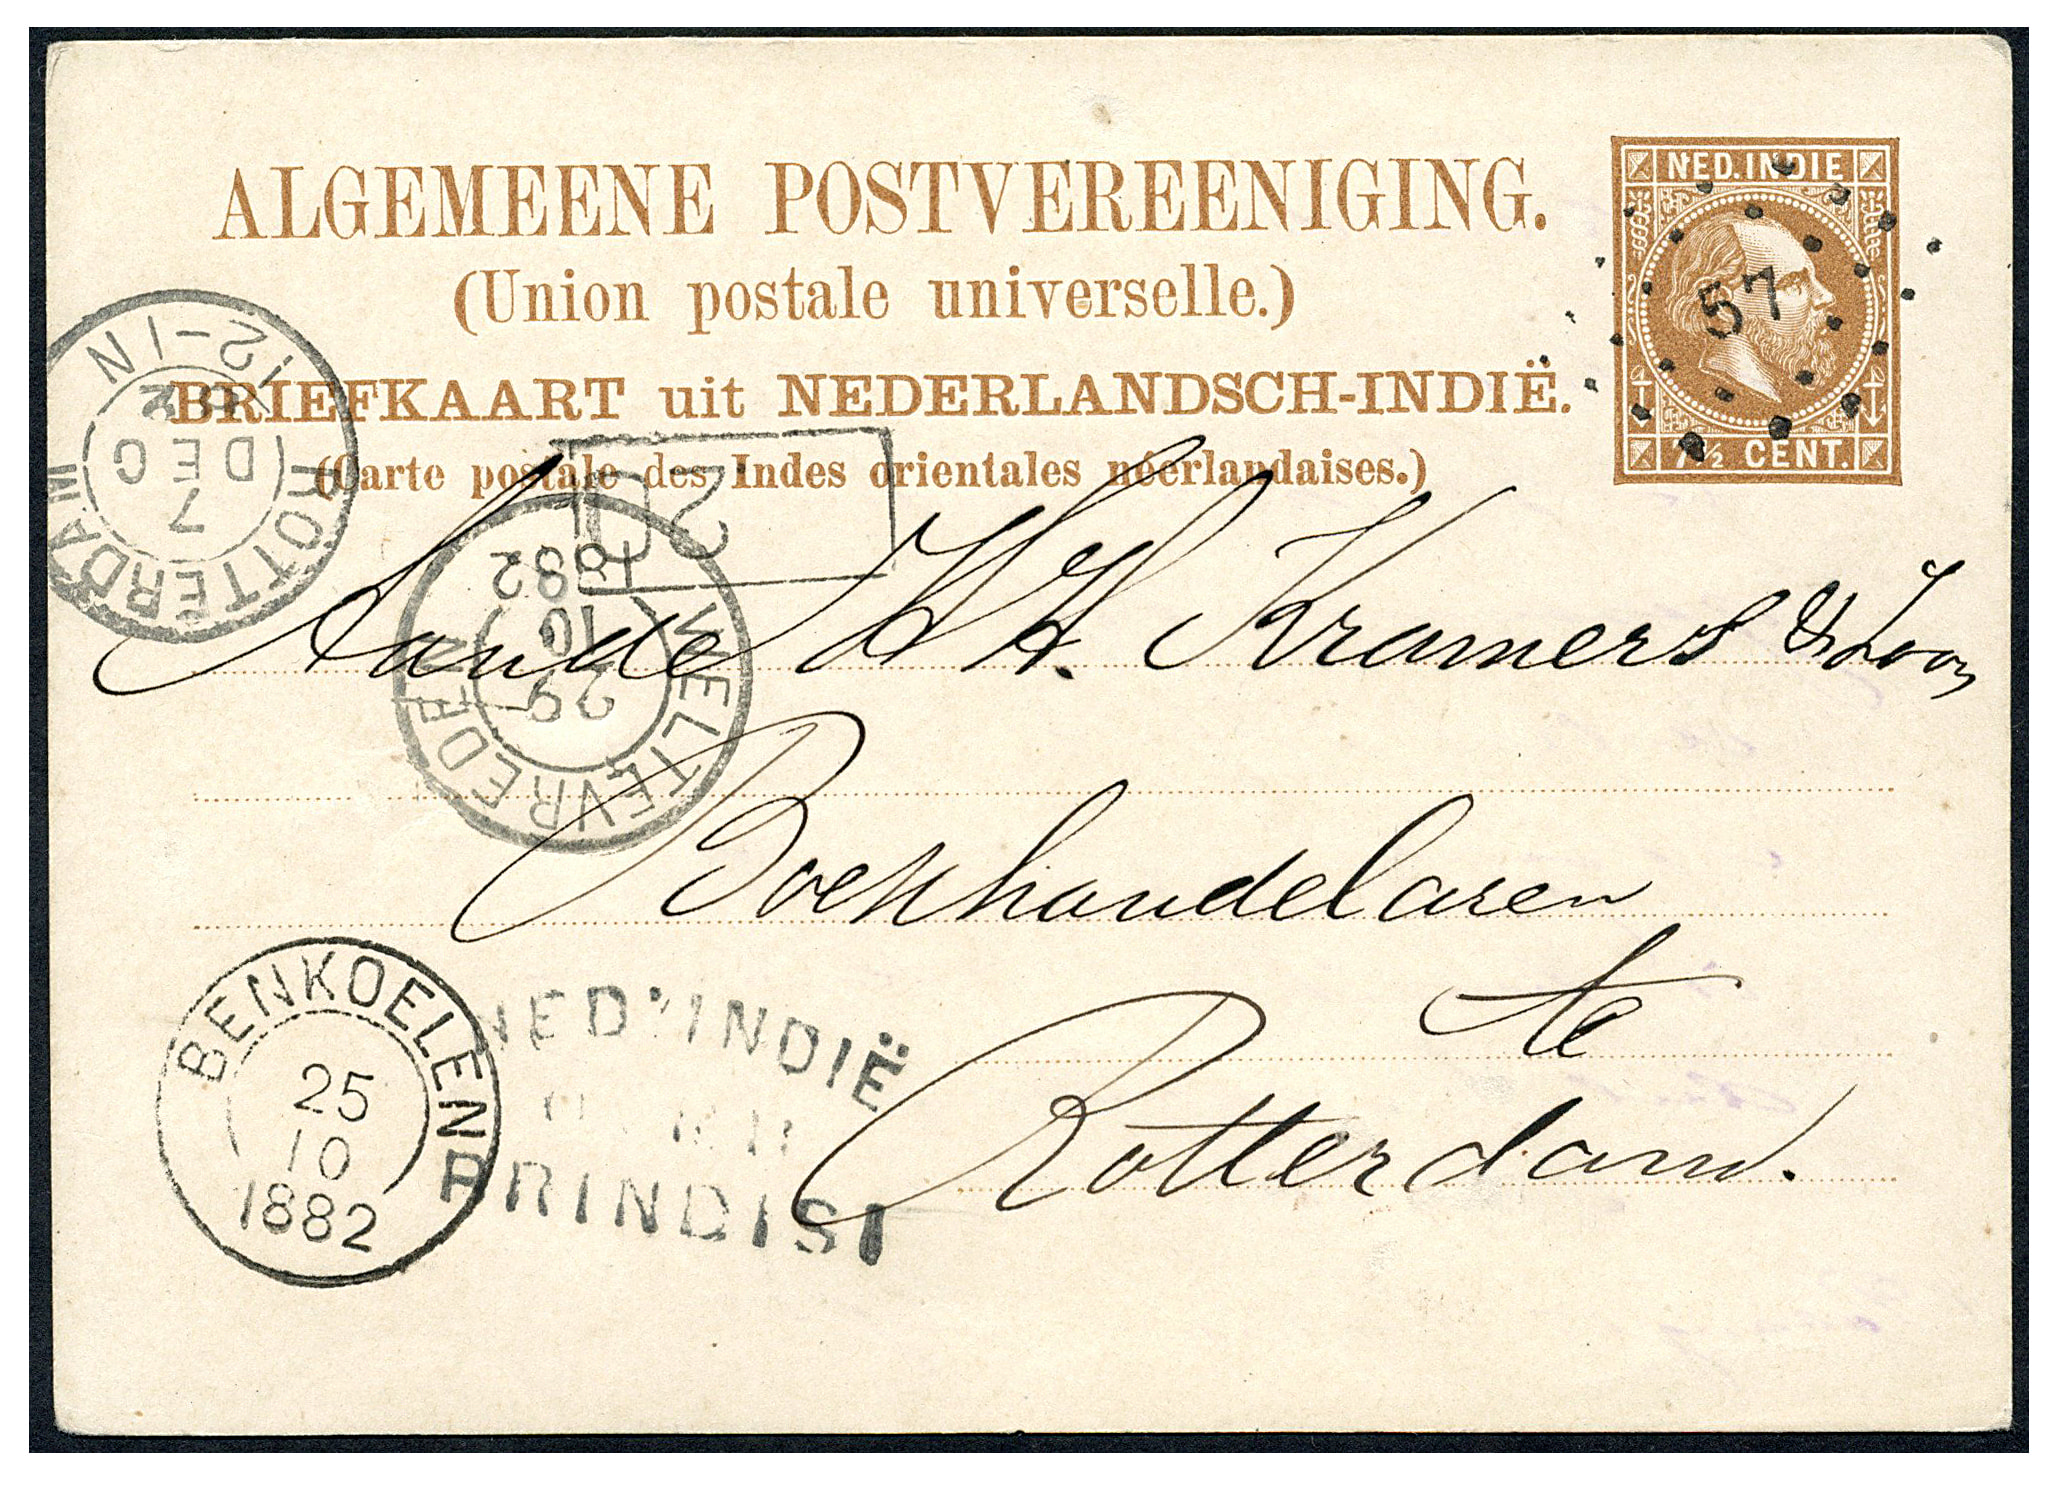 ALGEMEENE POSTVEREENIGING.
(Union postale universelle.)
BRIEFKAART uit NEDERLANDSCH-INDIË.
(Carte postale des Indes orientales néerlandaises.)
NED. INDIE
57
7½ CENT.
ROTTERDAM
7
DEC
12-1N
WELTEVREDEN
29
10
1882
Aan de HH. Kramers & Zoon
Boekhandelaren
te
Rotterdam.
BENKOELEN
25
10
1882
NED. INDIË
BRINDISI